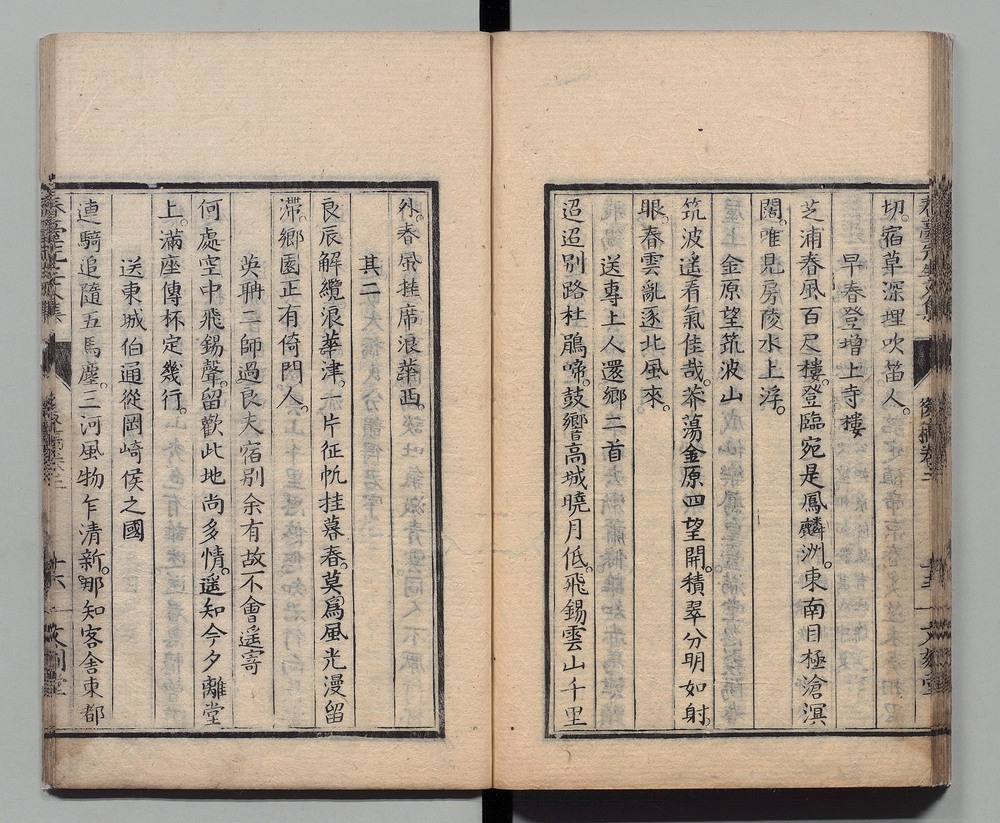 切。宿草深埋吹笛人。
早春登增上寺樓
芝浦春風百尺樓。登臨宛是鳳麟洲。東南目極滄溟
闊。唯見房陵水上浮。
金原望筑波山
筑波遙看氣佳哉。莽蕩金原四望開。積翠分明如射
眼。春雲亂逐北風來。
送專上人還鄉二首
迢迢別路杜鵑啼。鼓響高城曉月低。飛錫雲山千里
外。春風挂席浪華西。
其二
良辰解纜浪華津。一片征帆挂暮春。莫爲風光漫留
滯。鄉園正有倚門人。
英聃二師過良夫宿別余有故不會遙寄
何處空中飛錫聲。留歡此地尚多情。遙知今夕離堂
上。滿座傳杯定幾行。
送東城伯通從岡崎侯之國
連騎追隨五馬塵。三河風物乍清新。那知客舍東都